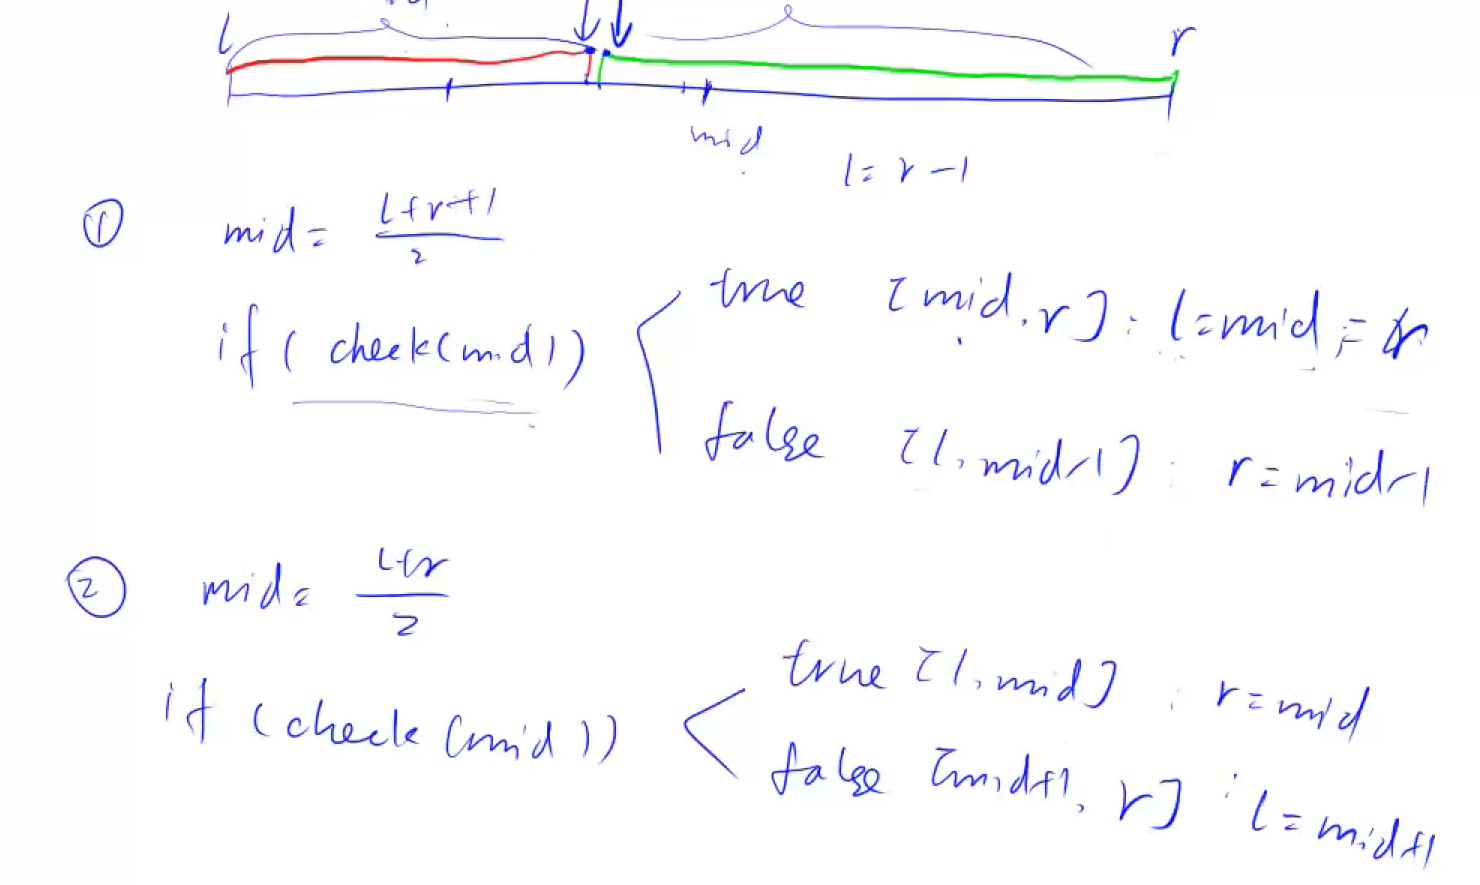 l r
mid
l = r - 1
① mid = l+r+1
2
if ( check(mid)) true [mid, r] : l=mid = r
false [l, mid-1] : r = mid-1
② mid = l+r
2
if (check (mid)) true [l, mid] : r = mid
false [mid+1, r] : l = mid+1